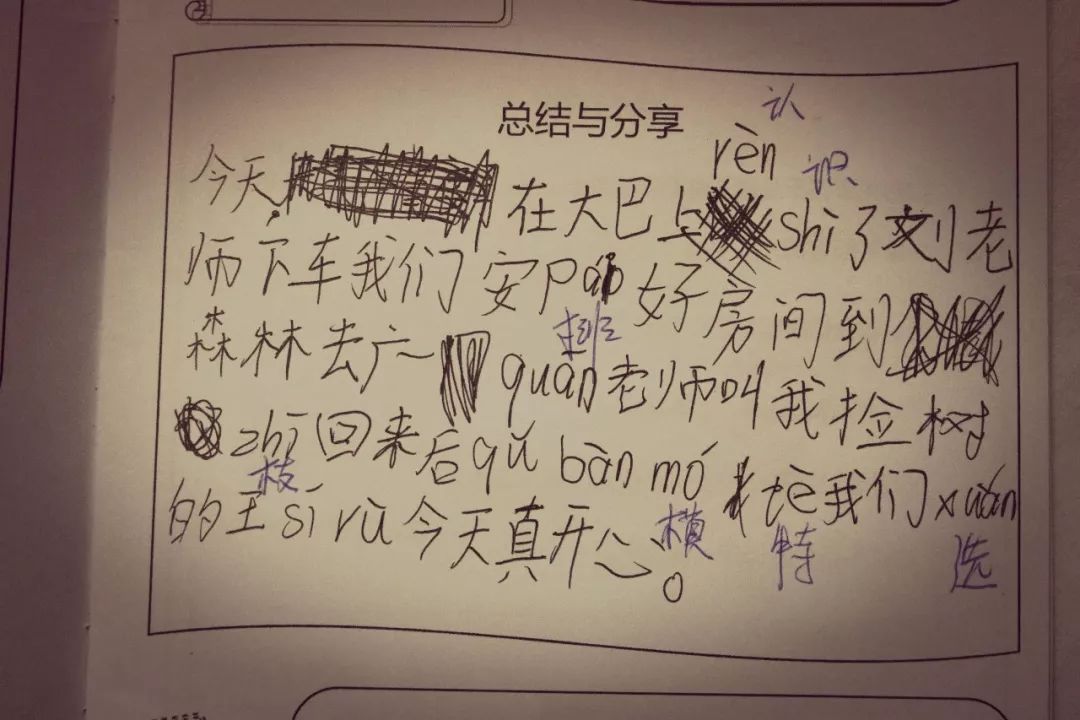 总结与分享
认
rèn 识
今天,在大巴上shi了刘老
师下车我们安pái好房间到
排
森林去广quán老师叫我捡树
zhī回来后qǔ bàn mó tè我们xuán
枝 模 特 选
的王sī rù今天真开心。